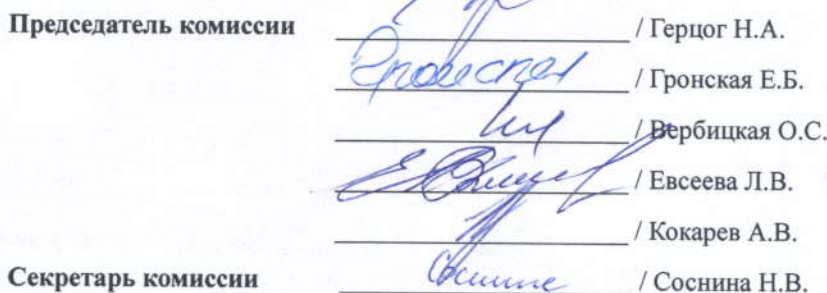 Председатель комиссии / Герцог Н.А.
/ Гронская Е.Б.
/ Вербицкая О.С.
/ Евсеева Л.В.
/ Кокарев А.В.
Секретарь комиссии / Соснина Н.В.